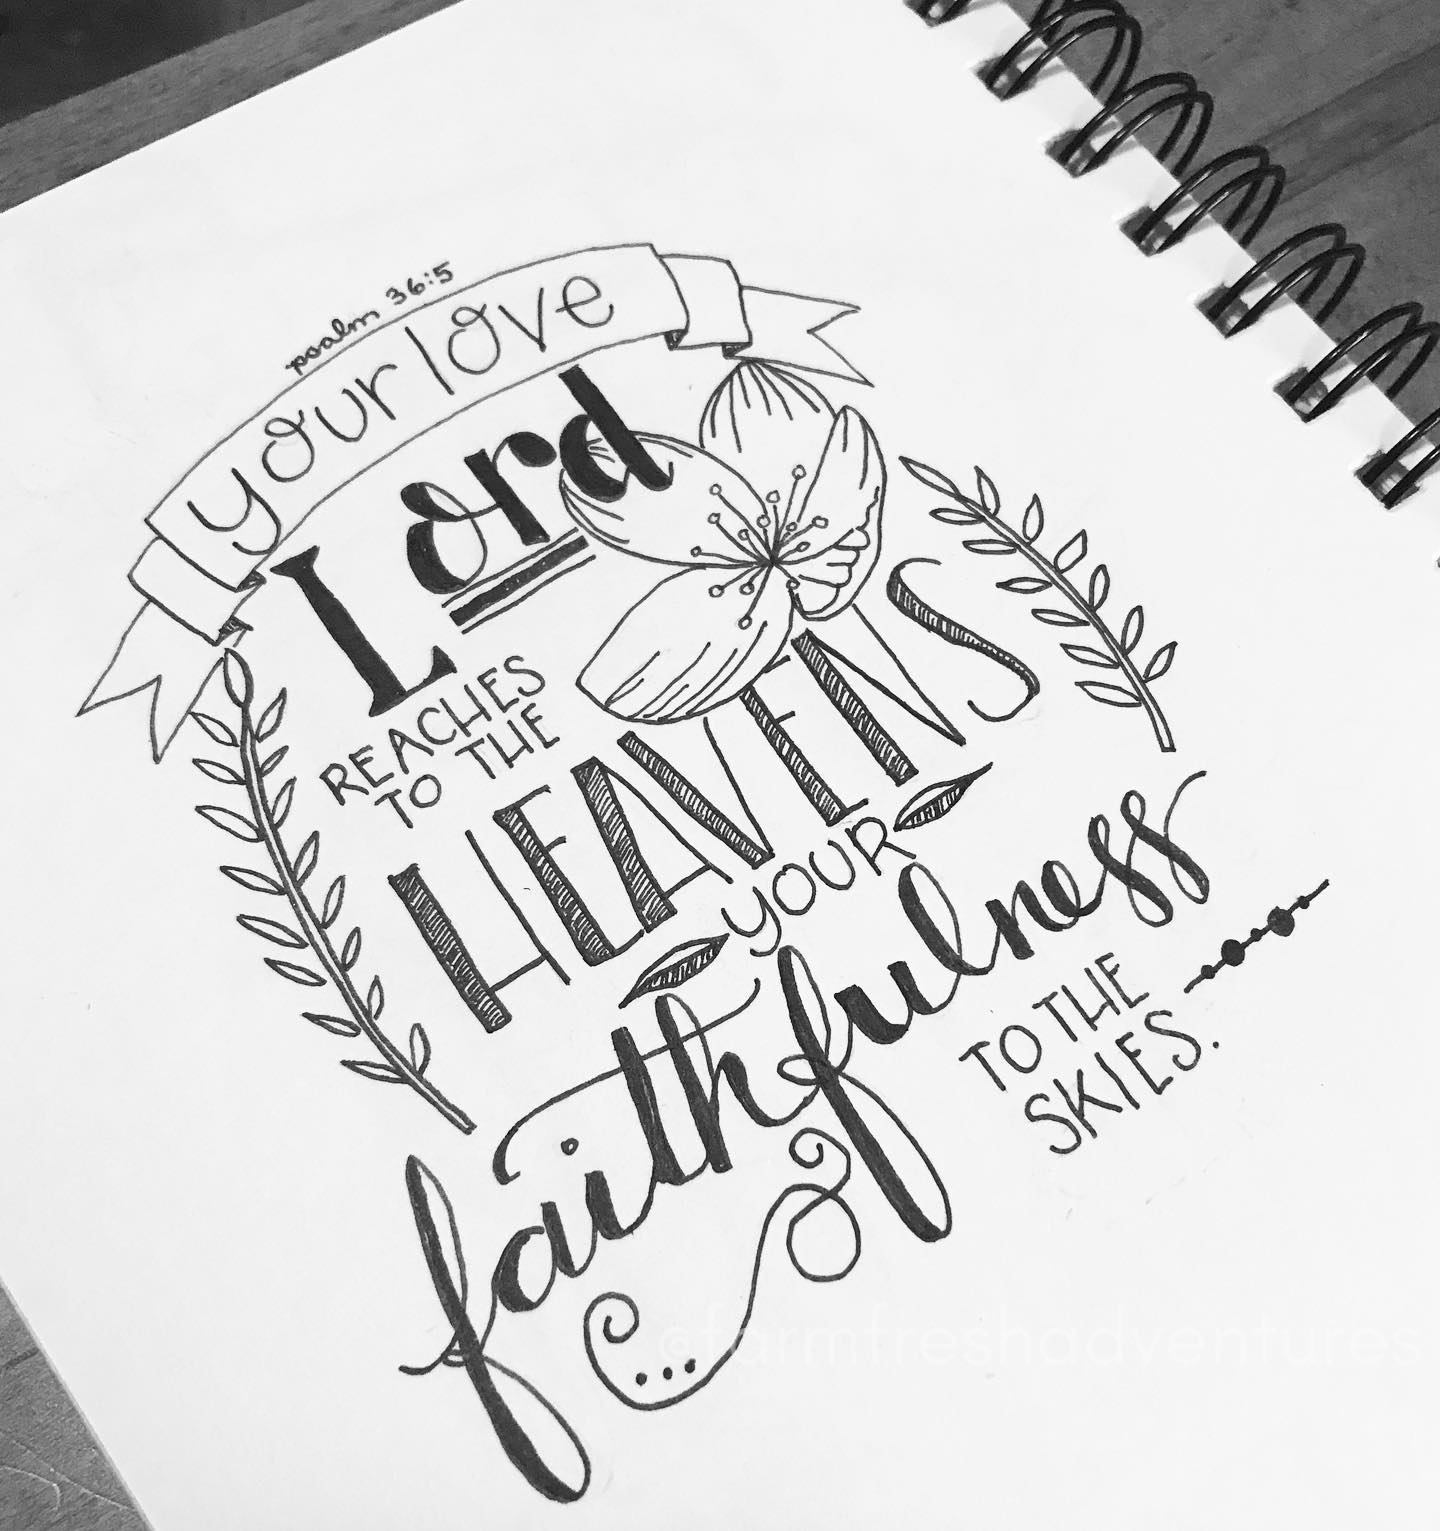 psalm 36:5
your love
Lord
REACHES
TO THE
HEAVENS
YOUR
faithfulness
TO THE
SKIES.
@farmfreshadventures